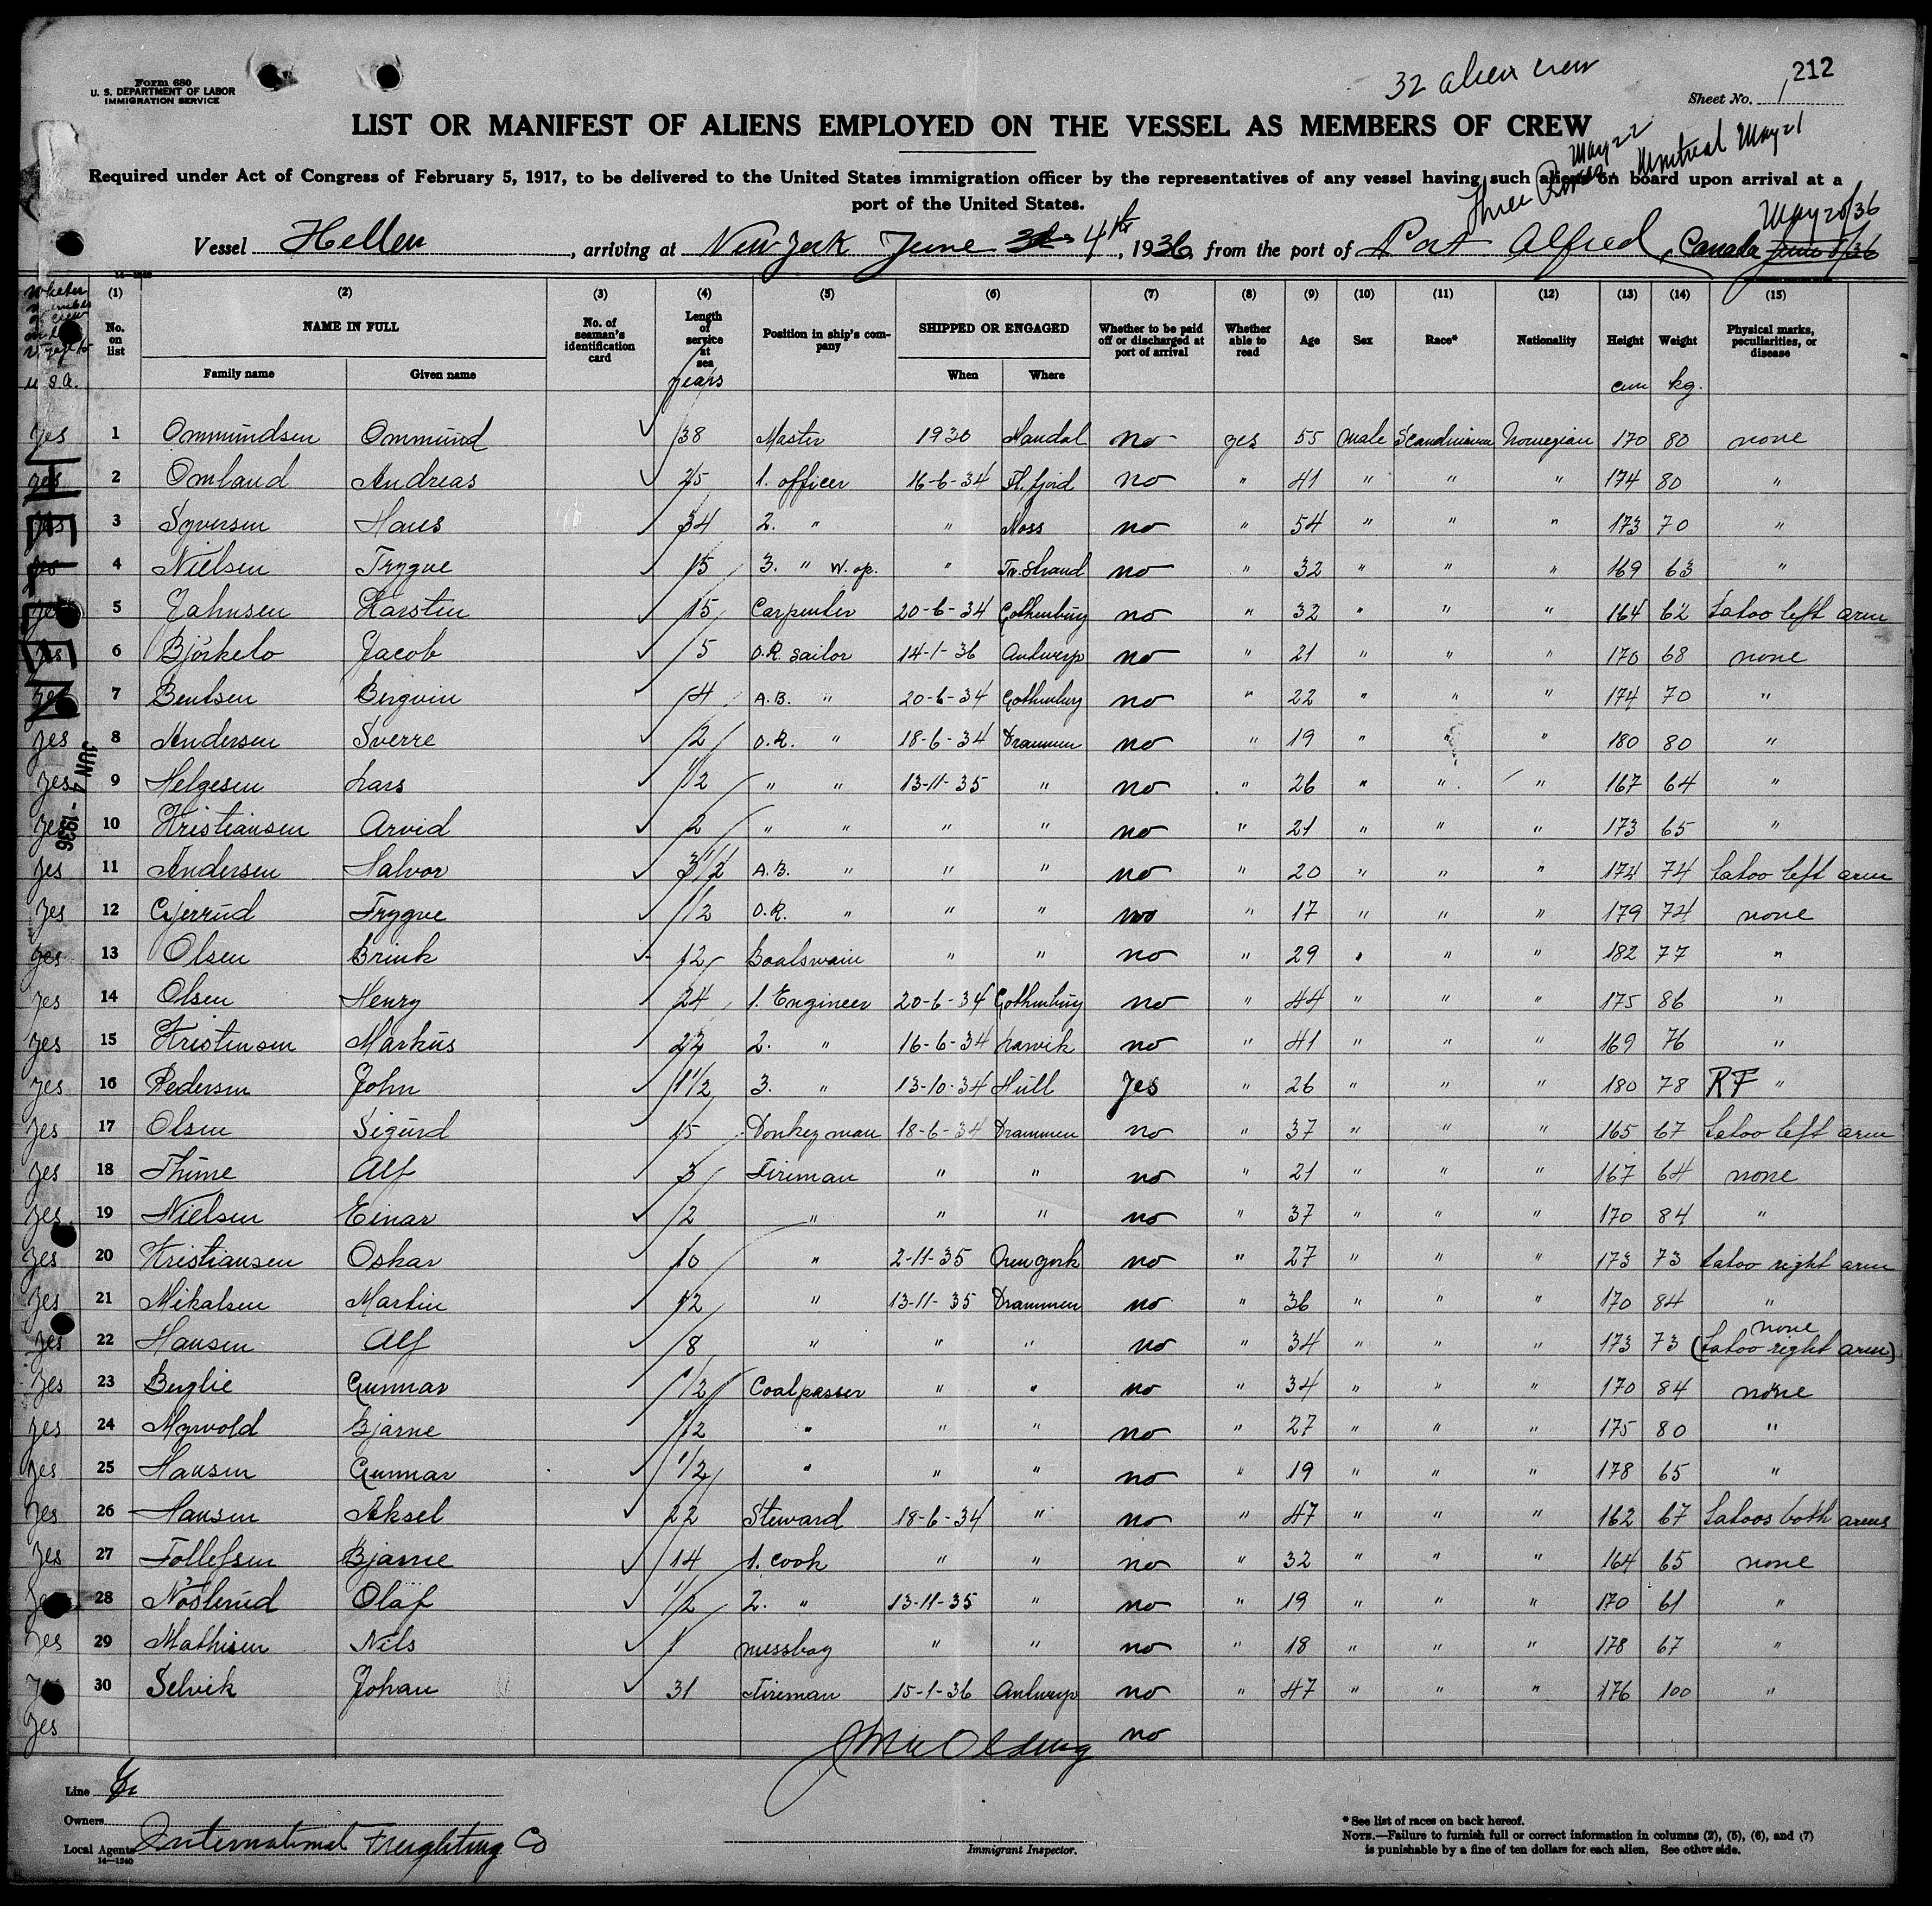 Form 680
U. S. DEPARTMENT OF LABOR
IMMIGRATION SERVICE
32 alien crew
212
Sheet No. 1
LIST OR MANIFEST OF ALIENS EMPLOYED ON THE VESSEL AS MEMBERS OF CREW
May 22
Three Rivers, Montreal May 21
Required under Act of Congress of February 5, 1917, to be delivered to the United States immigration officer by the representatives of any vessel having such aliens on board upon arrival at a
port of the United States.
May 20/36
Vessel Hellen, arriving at New York June 4th, 1936, from the port of Port Alfred, Canada
14-1240
(1) (2) (3) (4) (5) (6) (7) (8) (9) (10) (11) (12) (13) (14) (15)
No. on list NAME IN FULL No. of seaman's identification card Length of service at sea Position in ship's company SHIPPED OR ENGAGED Whether to be paid off or discharged at port of arrival Whether able to read Age Sex Race* Nationality Height Weight Physical marks, peculiarities, or disease
u s.a. Family name Given name years When Where cm kg.
yes 1 Ommundsen Ommund 38 Master 1930 Mandal no yes 55 male Scandinavian Norwegian 170 80 none
yes 2 Omland Andreas 25 1. officer 16-6-34 Fl. fjord no " 41 " " " 174 80 "
yes 3 Syversen Hans 34 2. " " Moss no " 54 " " " 173 70 "
yes 4 Nielsen Trygve 15 3. " W. op. " Tv. strand no " 32 " " " 169 63 "
yes 5 Jahnsen Karsten 15 Carpenter 20-6-34 Gothenburg no " 32 " " " 164 62 tatoo left arm
yes 6 Björkelo Jacob 5 O.R. sailor 14-1-36 Antwerp no " 21 " " " 170 68 none
yes 7 Bentsen Bergvin 4 A.B. " 20-6-34 Gothenburg no " 22 " " " 174 70 "
yes 8 Andersen Sverre 2 O.R. " 18-6-34 Drammen no " 19 " " " 180 80 "
yes 9 Helgesen Lars 1/2 " " 13-11-35 " no " 26 " " " 167 64 "
yes 10 Kristiansen Arvid 2 " " " " no " 21 " " " 173 65 "
yes 11 Andersen Halvor 3 1/2 A.B. " " " no " 20 " " " 174 74 tatoo left arm
yes 12 Gjerrud Trygve 1/2 O.R. " " " no " 17 " " " 179 74 none
yes 13 Olsen Brink 12 Boatswain " " no " 29 " " " 182 77 "
yes 14 Olsen Henry 24 1. Engineer 20-6-34 Gothenburg no " 44 " " " 175 86 "
yes 15 Kristensen Markus 22 2. " 16-6-34 Larvik no " 41 " " " 169 76 "
yes 16 Pedersen John 1 1/2 3. " 13-10-34 Hull Yes " 26 " " " 180 78 RF "
yes 17 Olsen Sigurd 15 Donkeyman 18-6-34 Drammen no " 37 " " " 165 67 tatoo left arm
yes 18 Thime Alf 3 Fireman " " no " 21 " " " 167 64 none
yes 19 Nielsen Einar 12 " " " no " 37 " " " 170 84 "
yes 20 Kristiansen Oskar 10 " 2-11-35 New York no " 27 " " " 173 73 tatoo right arm
yes 21 Mikalsen Martin 12 " 13-11-35 Drammen no " 36 " " " 170 84 "
none
yes 22 Hansen Alf 8 " " " no " 34 " " " 173 73 (tatoo right arm)
yes 23 Berglie Gunnar 1/2 Coalpasser " " no " 34 " " " 170 84 none
yes 24 Myrvold Bjarne 1/2 " " " no " 27 " " " 175 80 "
yes 25 Hansen Gunnar 1/2 " " " no " 19 " " " 178 65 "
yes 26 Hansen Aksel 22 Steward 18-6-34 " no " 47 " " " 162 67 tatoos both arms
yes 27 Tollefsen Bjarne 14 1. Cook " " no " 32 " " " 164 65 none
yes 28 Nösterud Olaf 1/2 2. " 13-11-35 " no " 19 " " " 170 61 "
yes 29 Mathisen Nils 1 messboy " " no " 18 " " " 178 67 "
yes 30 Selvik Johan 31 Fireman 15-1-36 Antwerp no " 47 " " " 176 100 "
yes no
JUN 4 - 1936
Line
Owners
Local Agents International Freighting Co
14-1240
Immigrant Inspector.
* See list of races on back hereof.
NOTE.—Failure to furnish full or correct information in columns (2), (5), (6), and (7)
is punishable by a fine of ten dollars for each alien. See other side.